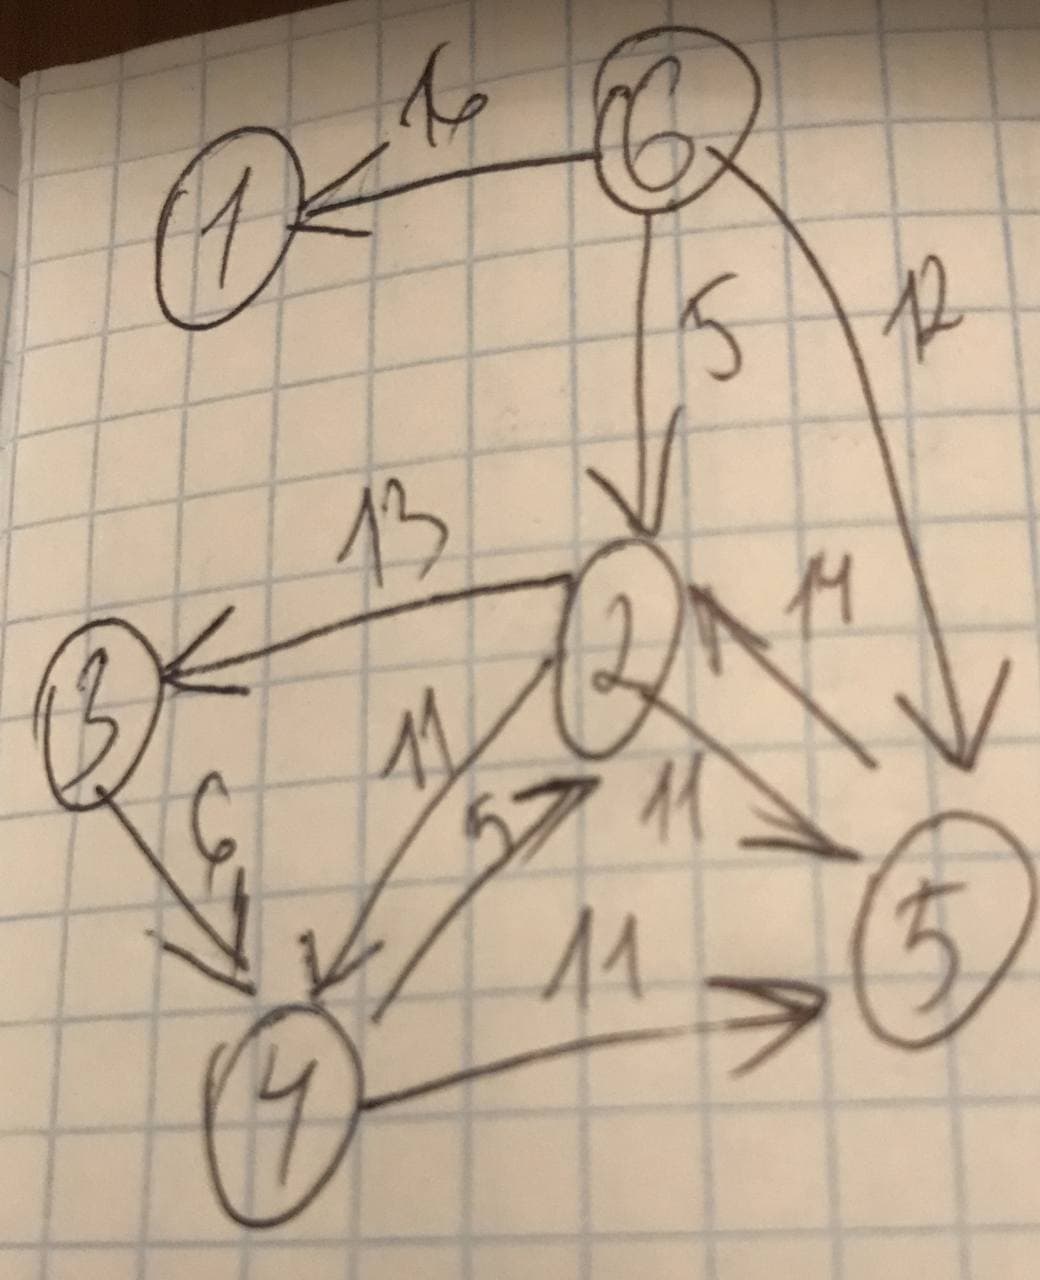 16
6
1
5
12
13
14
2
3
11
6
5
11
11
5
4